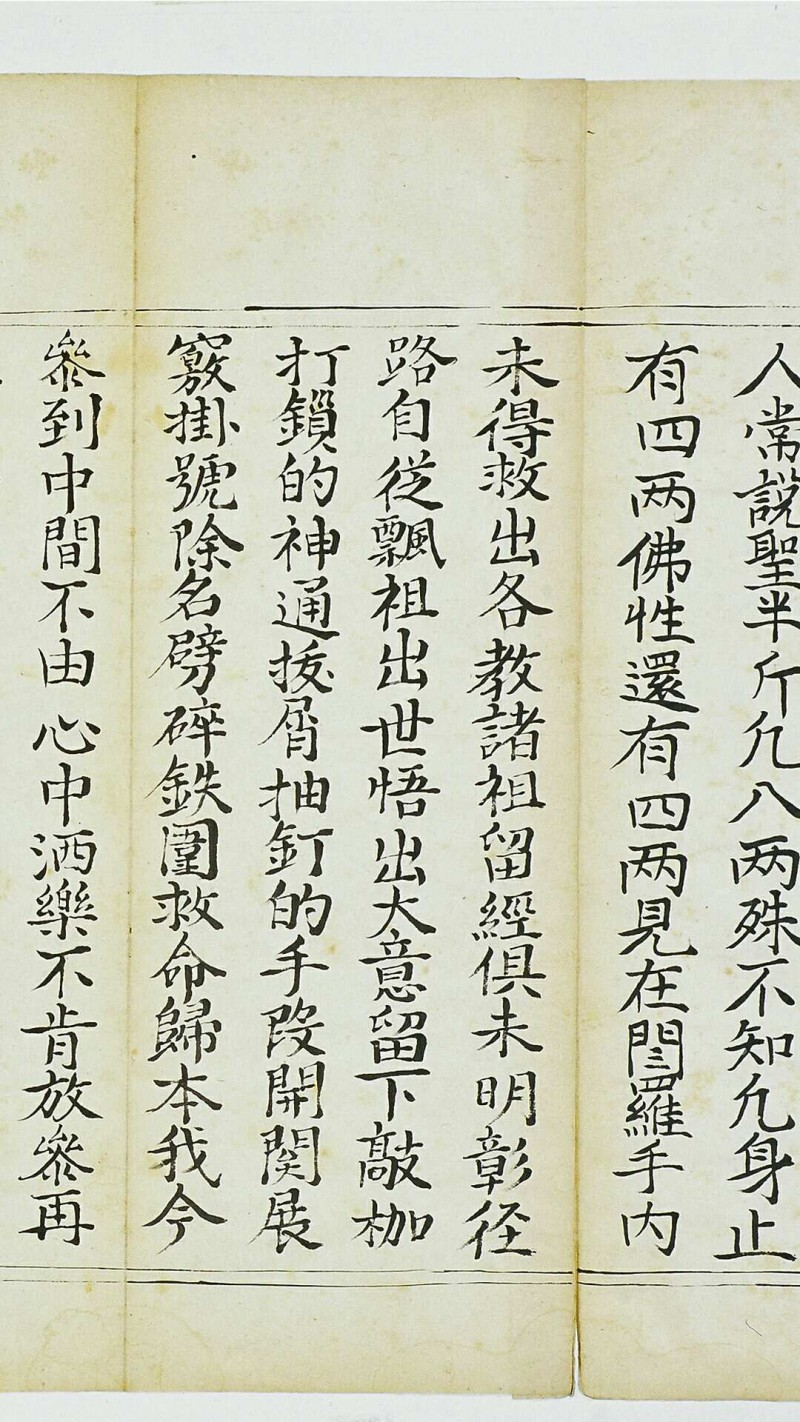 人常説聖半斤凢八两殊不知凢身止
有四两佛性還有四两見在閆羅手内
未得救出各教諸祖留經俱未明彰径
路自従飄祖出世悟出大意留下敲枷
打鎖的神通拨屑抽釘的手段開関展
竅掛號除名劈碎鉄圍救命歸本我今
叅到中間不由心中洒樂不肯放叅再